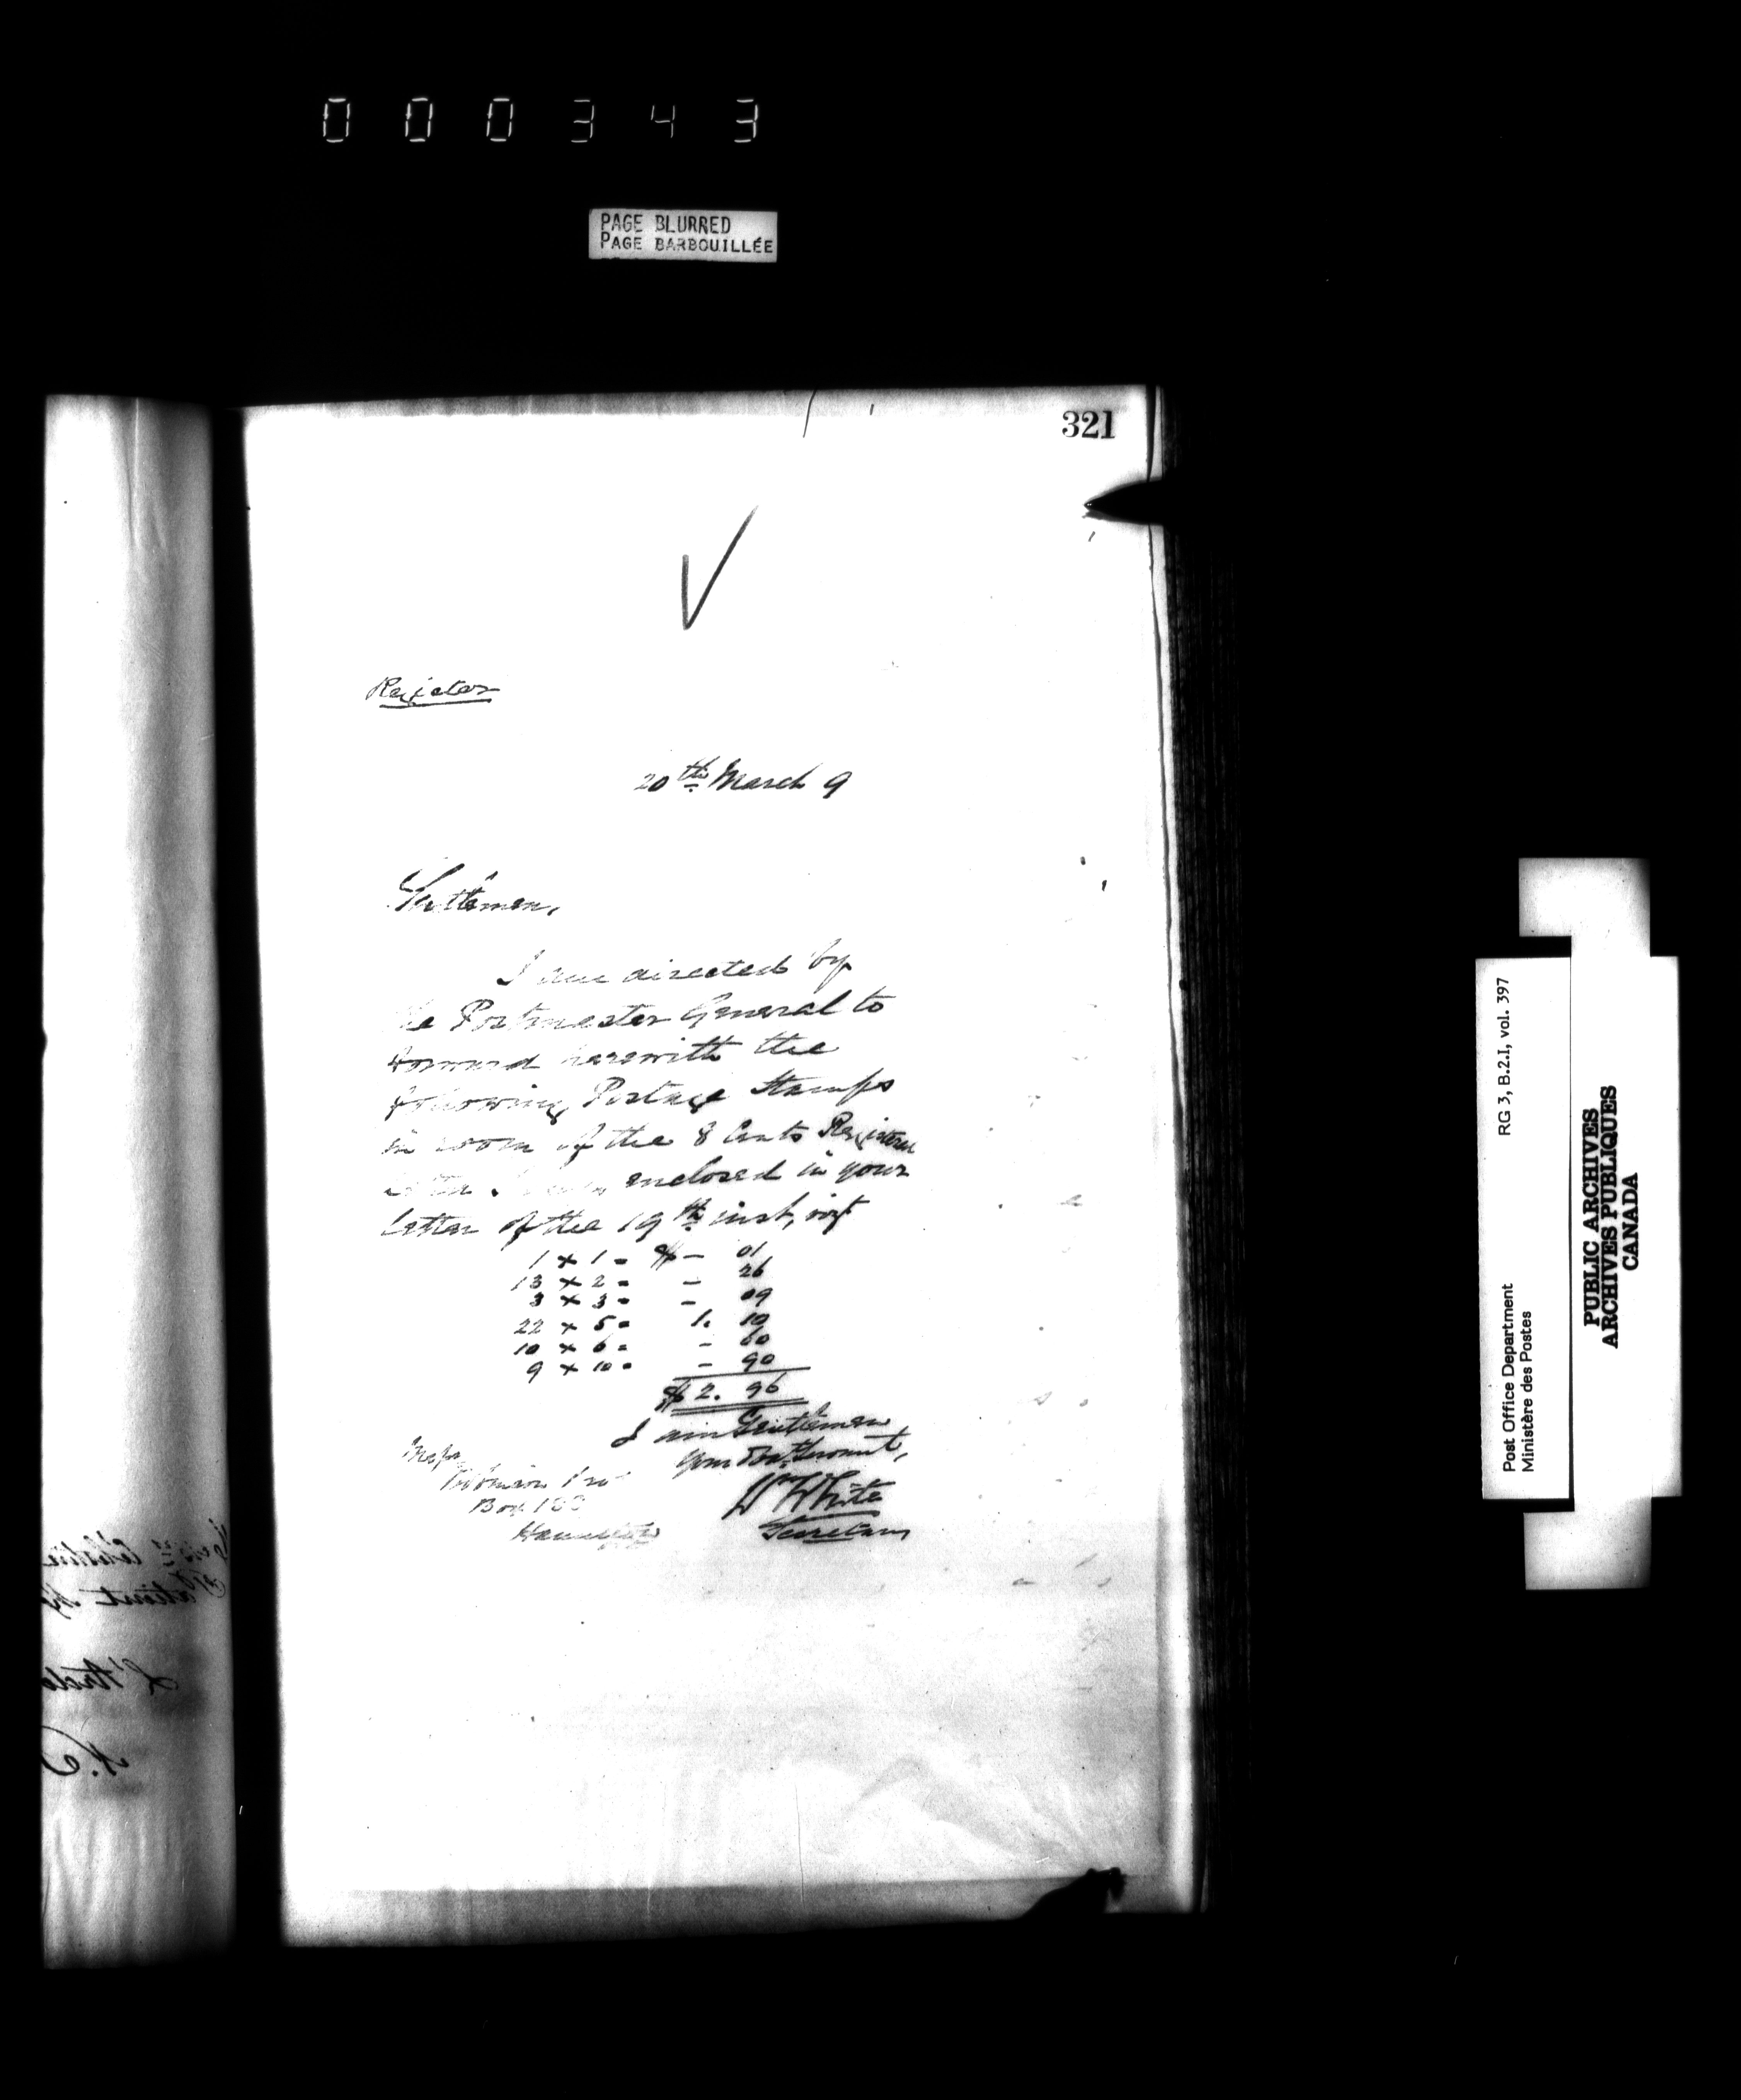 000343
PAGE BLURRED
PAGE BARBOUILLÉE
321
Register
20th March 9
Gentlemen,
I am directed by
the Postmaster General to
forward herewith the
following Postage Stamps
in room of the 8 Cents Registered
Letter Stamps enclosed in your
letter of the 19th inst, viz
1 x 1 = $ - 01
13 x 2 = - 26
3 x 3 = - 09
22 x 5 = 1. 10
10 x 6 = - 60
9 x 10 = - 90
$ 2. 96
I am Gentlemen
Your Obt. Servant,
Wm White
Secretary
Messrs
Box 100
Hamilton
RG 3, B.2.I, vol. 397
Post Office Department
Ministère des Postes
PUBLIC ARCHIVES
ARCHIVES PUBLIQUES
CANADA